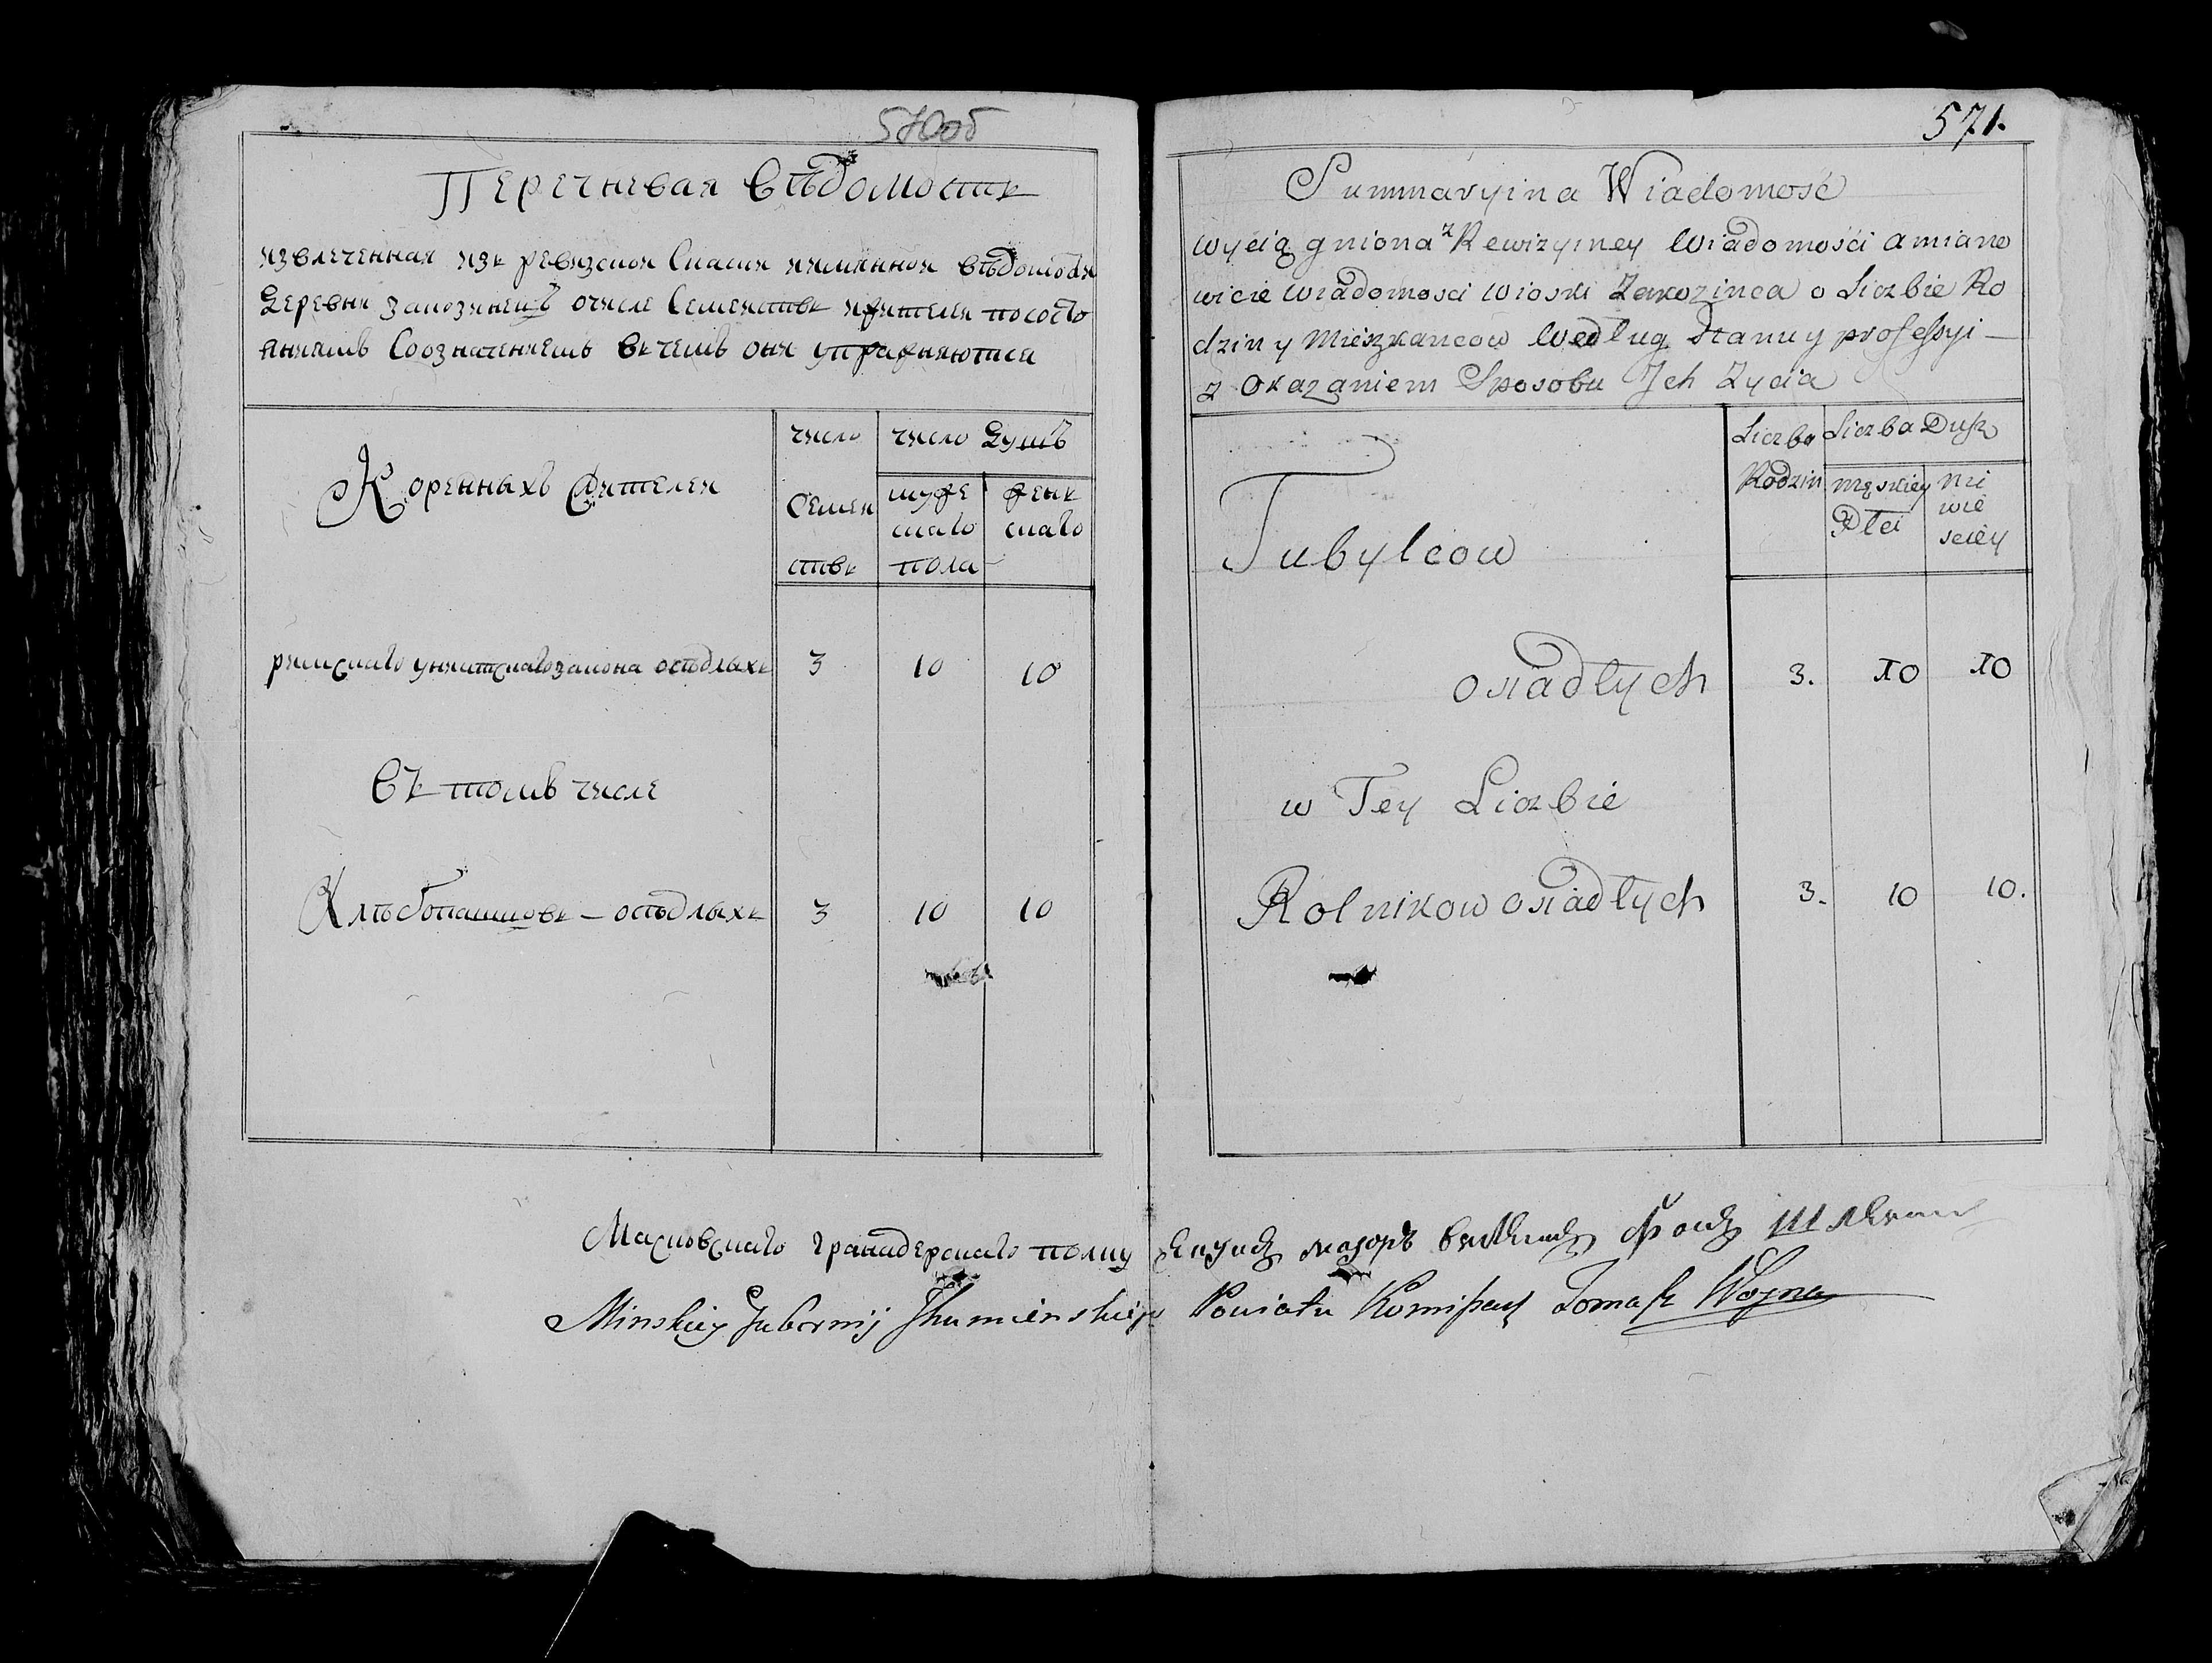 570об
Перечневая вѣдомость
извлеченная изъ ревизской имянной вѣдомости
Деревни о числе Семействъ и жителей по состо
яниямъ Сообозначениемъ въ чемъ они упражняются
Коренныхъ Жителей
число
число Душъ
Семей
ствъ
муже
скаго
пола
женъ
скаго
римскаго униятскаго закона оседлыхъ 3 10 10
Въ томъ числе
Хлѣбопашцовъ – осѣдлыхъ 3 10 10
571.
Summaryina Wiadomość
wyciągniona z Rewizyiney Wiadomości amiano
wicie wiadomosci wioski Zakozinca o Liczbie Ro
dzin y Mieszkancow Według Stanu y professyi –
z okazaniem Sposobu Jch Zycia
Tubylcow
Liczba
Rodzin
Liczba Dusz
męskiey
Płci
nie
wie
sciey
osiadłych 3. 10 10
w Tey Liczbie
Rolnikow osiadłych 3. 10 10.
Московскаго гранадерскаго полку маiоръ фонъ
Minskiey Gubernij Jhumienskiego Powiatu Komisarz Tomasz Woyna